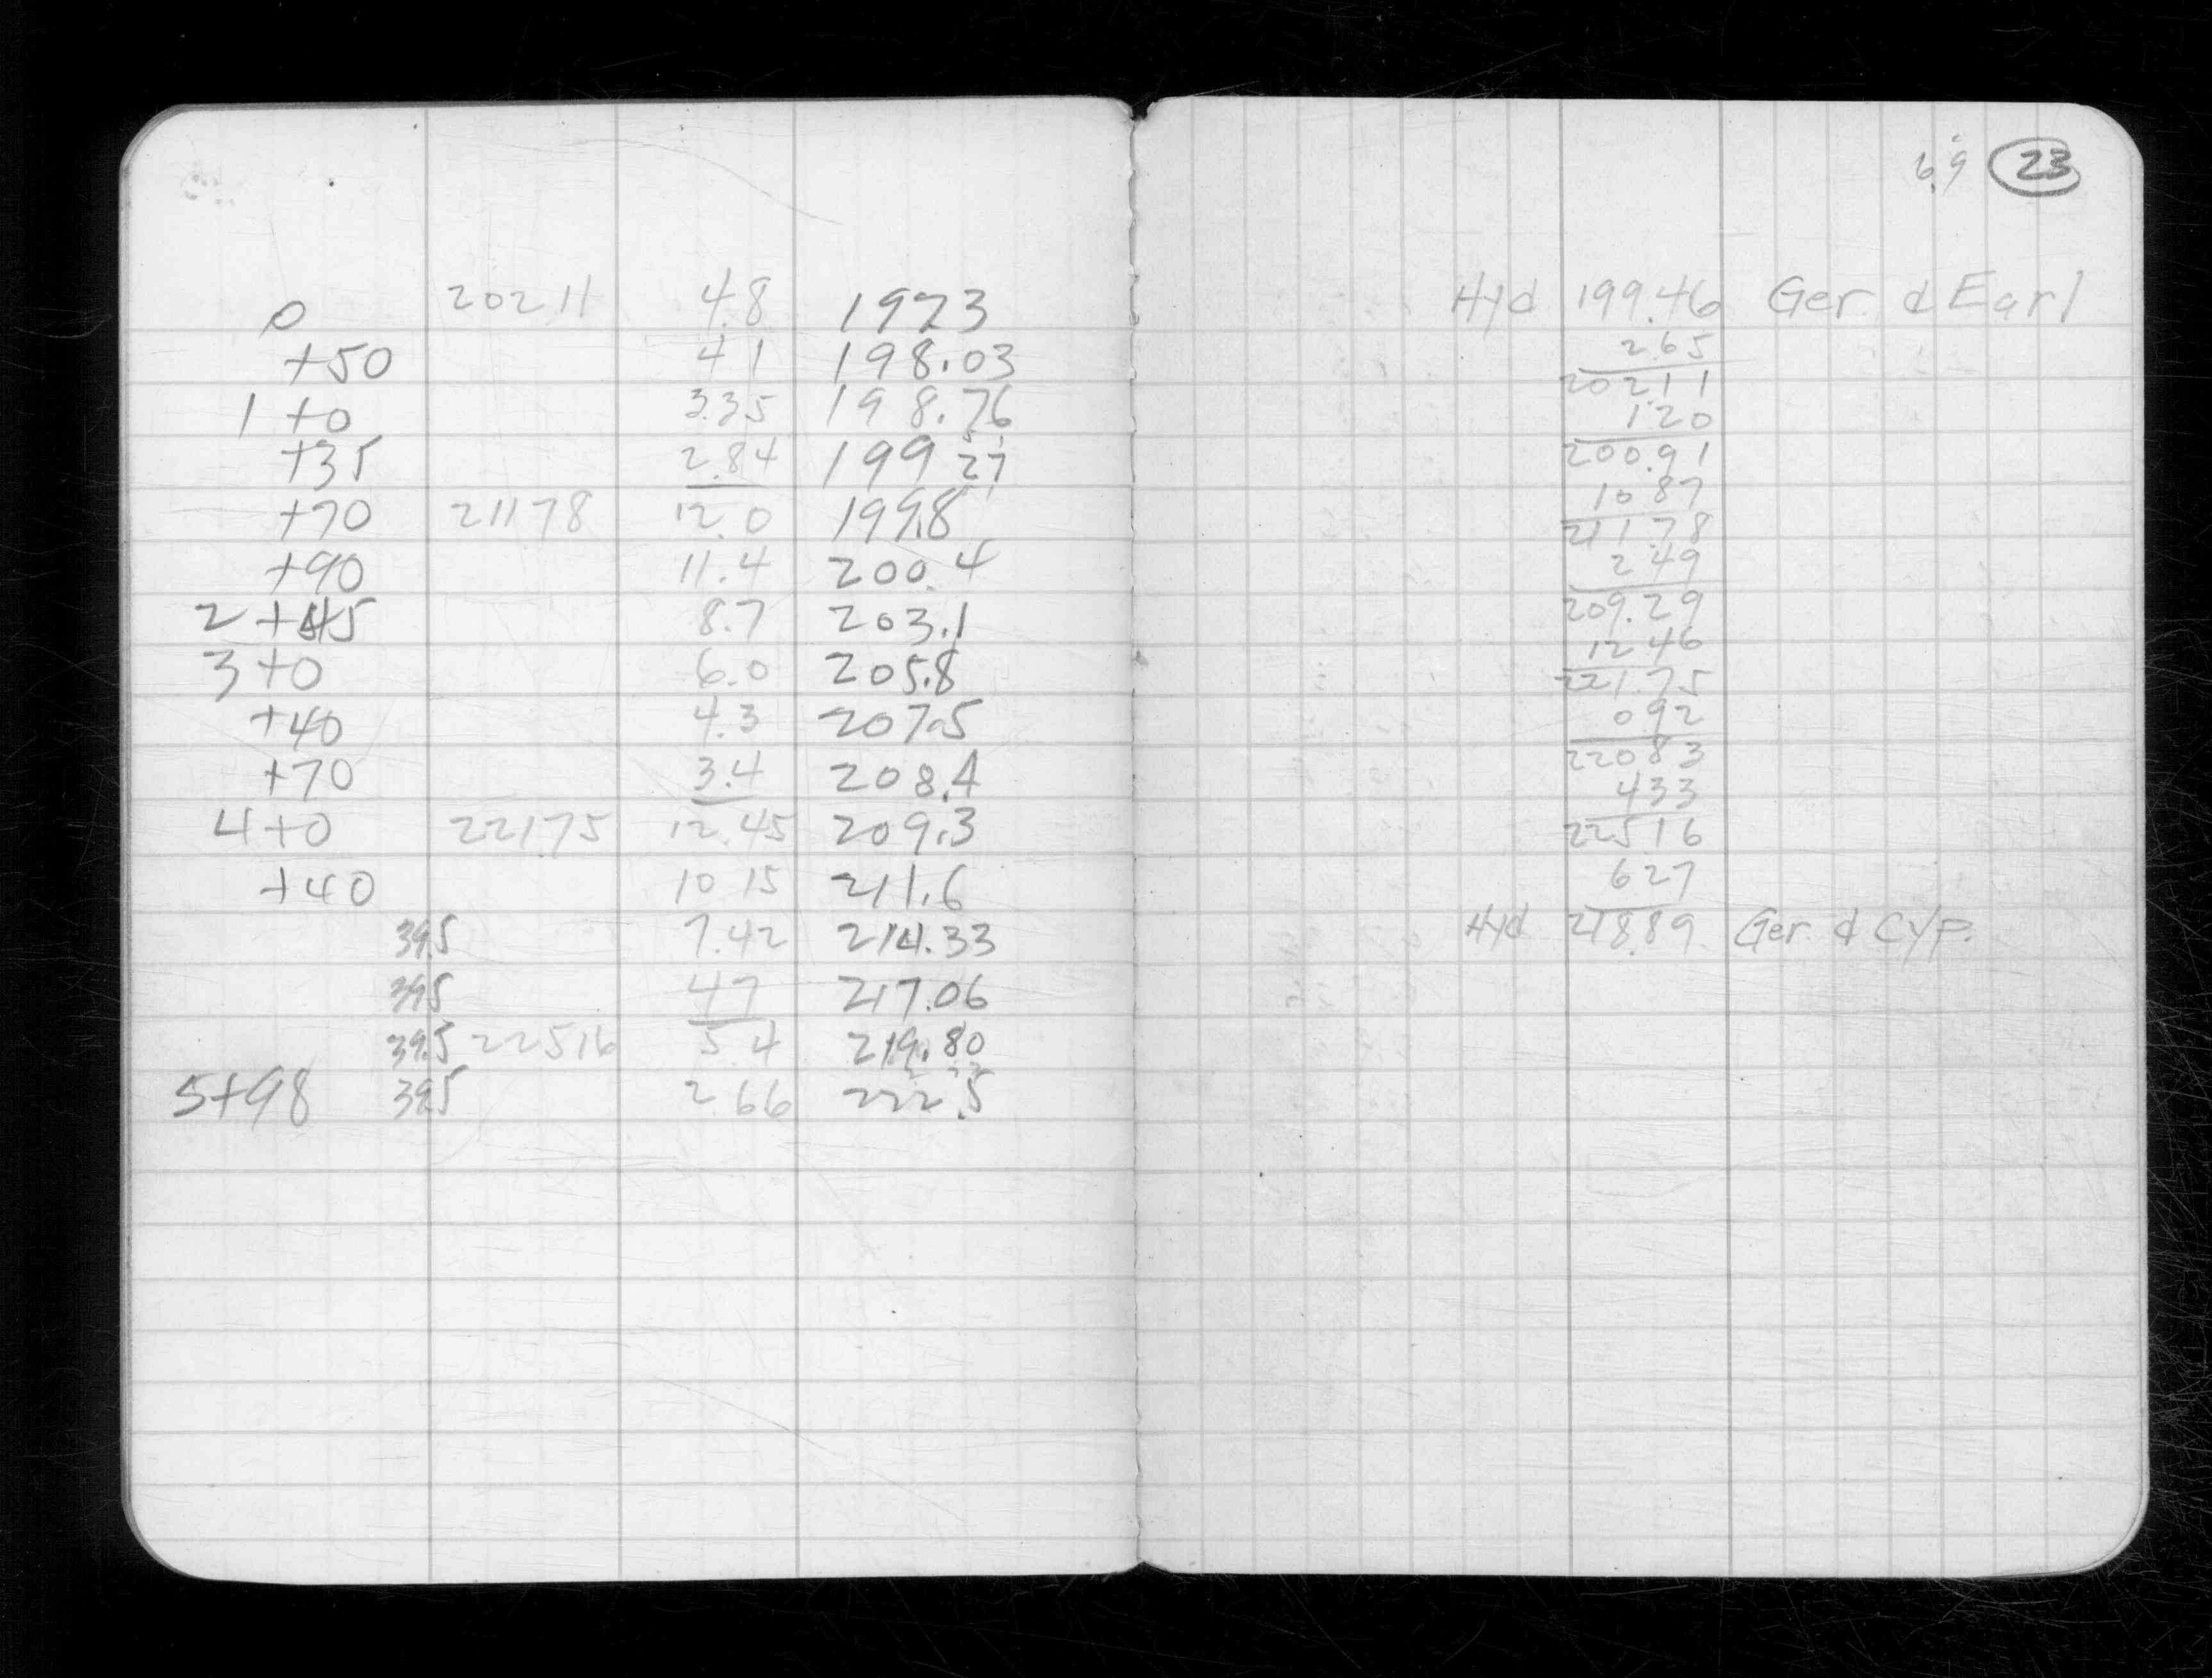 0 20211 4.8 197.3
+50 4.1 198.03
1+0 3.35 198.76
+35 2.84 199.27
+70 21178 12.0 199.8
+90 11.4 200.4
2+45 8.7 203.1
3+0 6.0 205.8
+40 4.3 207.5
+70 3.4 208.4
4+0 22175 12.45 209.3
+40 10 15 211.6
39.5 7.42 214.33
39.5 47 217.06
39.5 22516 5.4 219.80
5+98 39.5 2.66 222.5
6.9 23
Hyd 199.46 Ger. & Earl
2.65
202.11
1.20
200.91
10 87
211.78
2 49
209.29
12 46
221.75
0 92
220 83
4 33
225 16
6 27
Hyd 218.89 Ger. & Cyp.